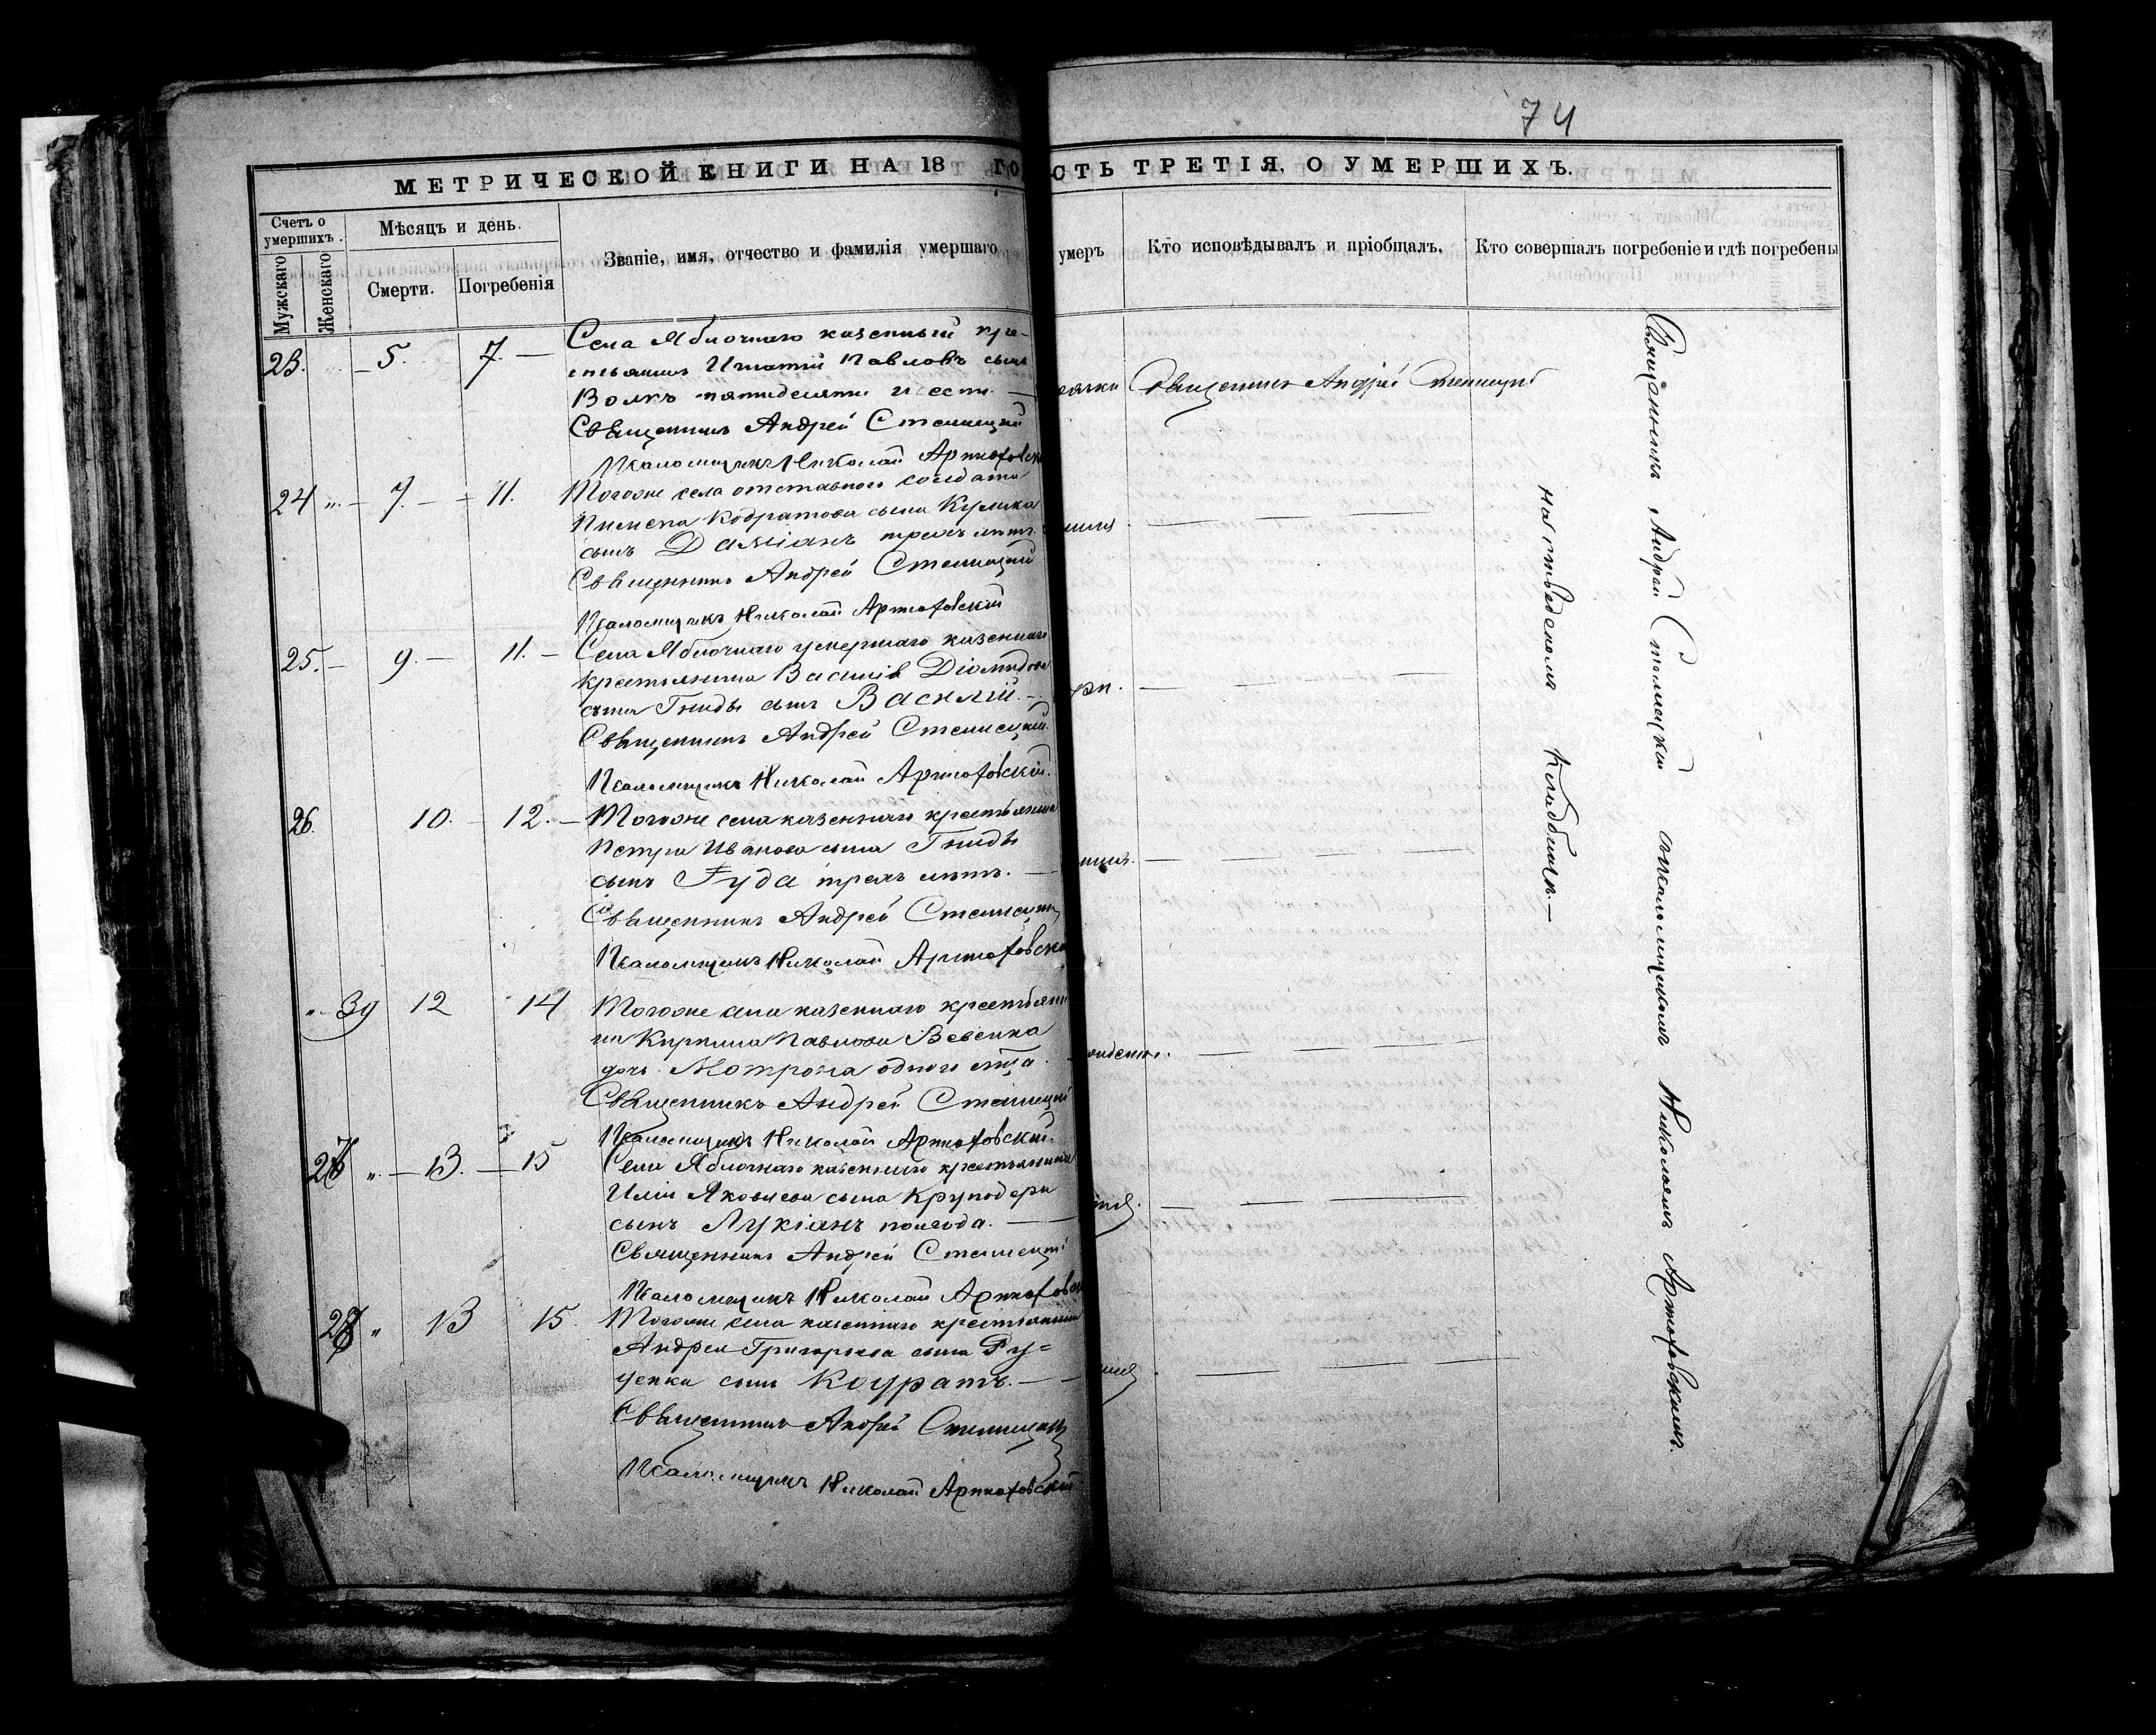 74
МЕТРИЧЕСКОЙ КНИГИ НА 18 ГО
СТЬ ТРЕТІЯ, О УМЕРШИХЪ.
Счетъ о умершихъ.
Мѣсяцъ и день.
Званіе, имя, отчество и фамилія умершаго
Мужскаго
Женскаго
Смерти.
Погребенія
умеръ
Кто исповѣдывалъ и пріобщалъ.
Кто совершалъ погребеніе и гдѣ погребены
23. 5. 7. — Села Яблочнаго казенный кре-
стьянинъ Игнатій Павловъ сынъ
Волкъ пятидесяти шести. —
Священникъ Андрей Стеллецкій
Псаломщикъ Николай Артюховск
Священникъ Андрей Стеллецкій
24 " — 7. — 11. Тогоже села отставного солдата
Пимена Кодратова сына Кулика
сынъ Даміанъ трехъ лѣтъ.
Священникъ Андрей Стеллецкій
Псаломщикъ Николай Артюховскій
25. — 9. — 11. — Села Яблочнаго умершаго казеннаго
крестьянина Василія Діомидова
сына Гниды сынъ Василій. —
Священникъ Андрей Стеллецкій.
Псаломщикъ Николай Артюховскій.
26. 10. — 12. — Тогоже села казеннаго крестьянина
Петра Иванова сына Гниды
сынъ Іуда трехъ лѣтъ. —
Священникъ Андрей Стеллецкій
Псаломщикъ Николай Артюховскі
" 39 12 14 Тогоже села казеннаго крестьяни
на Кирилла Павлова
дочь Мотрона одного лѣта
Священникъ Андрей Стеллецкій
Псаломщикъ Николай Артюховскій.
27 " — 13. — 15 Села Яблочнаго казеннаго крестьянина
Иліи Яковлева сына Круподери
сынъ Лукіанъ полгода. —
Священникъ Андрей Стеллецкі
Псаломщикъ Николай Артюховск
28 " 13 15. Тогоже села казеннаго крестьянина
Андрея Григорьева сына Ру=
ценка сынъ Кодратъ. —
Священникъ Андрей Стеллецкій
Псаломщикъ Николай Артюховскій
на приходскомъ кладбищѣ. —
Священникъ Андрей Стеллецкій съ псаломщикомъ Николаемъ Артюховскимъ.